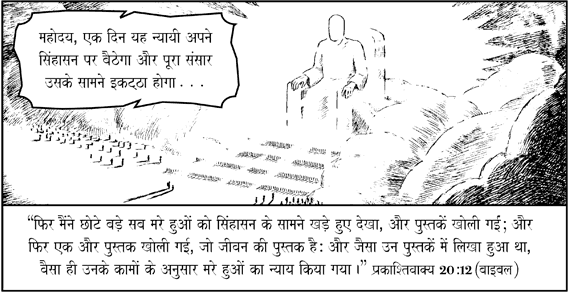 महोदय, एक दिन यह न्यायी अपने
सिंहासन पर बैठेगा और पूरा संसार
उसके सामने इकट्ठा होगा . . .
“फिर मैंने छोटे बड़े सब मरे हुओं को सिंहासन के सामने खड़े हुए देखा, और पुस्तकें खोली गई; और
फिर एक और पुस्तक खोली गई, जो जीवन की पुस्तक है: और जैसा उन पुस्तकों में लिखा हुआ था,
वैसा ही उनके कामों के अनुसार मरे हुओं का न्याय किया गया।” प्रकाशितवाक्य 20:12 (बाइबल)